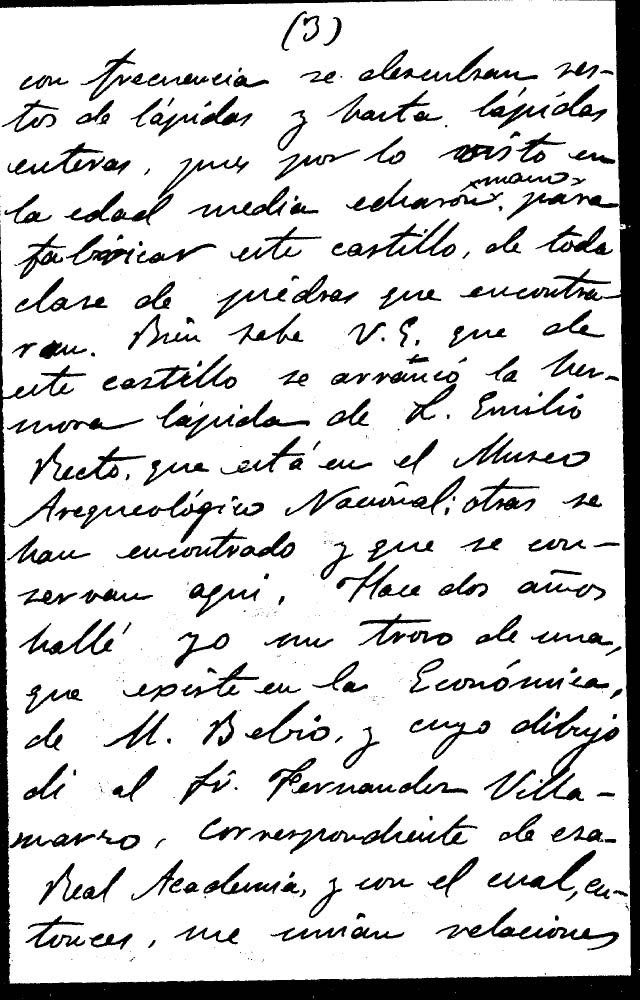 (3)
con frecuencia se descubran res-
tos de lápidas y hasta lápidas
enteras, pues por lo visto en
la edad media echaron manos para
fabricar este castillo, de toda
clase de piedras que encontra-
ran. Bien sabe V.E. que de
este castillo se arrancó la her-
mosa lápida de L. Emilio
Recto, que está en el Museo
Arqueológico Nacional; otras se
han encontrado y que se con-
servan aqui. Hace dos años
hallé yo un trozo de una,
que existe en la Económica,
de M. Bebio, y cuyo dibujo
di al Sr. Fernandez Villa-
marzo, correspondiente de esa
Real Academia, y con el cual, en-
tonces, me unian relaciones